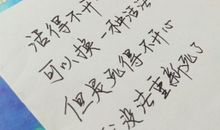 活得不开
可以换一种活法
但是死得不开心
没法重新死了